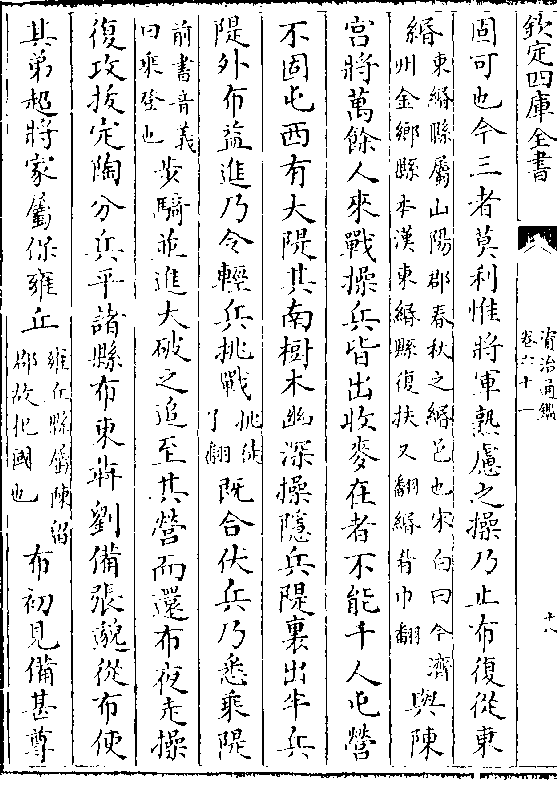 欽定四庫全書
資治通鑑
卷六十一
十八
固可也今三者莫利惟將軍熟慮之操乃止布復從東
緡東緡縣屬山陽郡春秋之緡邑也宋白曰今濟州金鄉縣本漢東緡縣復扶又翻緡眉巾翻與陳
宮將萬餘人來戰操兵皆出收麥在者不能千人屯營
不固屯西有大隄其南樹木幽深操隱兵隄裏出半兵
隄外布益進乃令輕兵挑戰挑徒了翻既合伏兵乃悉乘隄
前書音義曰乘登也步騎並進大破之追至其營而還布夜走操
復攻拔定陶分兵平諸縣布東奔劉備張邈從布使
其弟超將家屬保雍丘雍丘縣屬陳留郡故杞國也布初見備甚尊